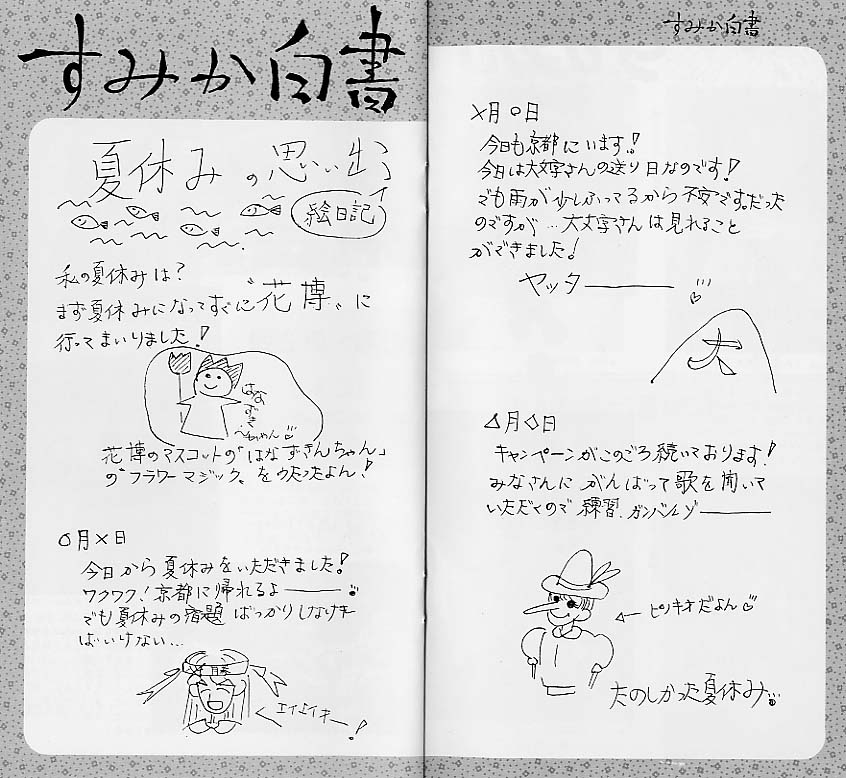 すみか白書
夏休みの思い出
絵日記
私の夏休みは？
まず夏休みになってすぐに〝花博〟に
行ってまいりました！
はな
ずき
〜ちゃん
花博のマスコットの「はなずきんちゃん」
の〝フラワーマジック〟をうたったよん！
〇月×日
今日から夏休みをいただきました！
ワクワク！京都に帰れるよー
でも夏休みの宿題ばっかりしなけれ
ばいけない…
エイエイオー！
すみか白書
×月〇日
今日も京都にいます！
今日は大文字さんの送り日なのです！
でも雨が少しふってるから不安です。だった
のですが…大文字さんは見れること
ができました！
ヤッター
大
△月◇日
キャンペーンがこのごろ続いております！
みなさんにがんばって歌を聞いて
いただくので練習、ガンバルゾー
ピノキオだよん
たのしかった夏休み